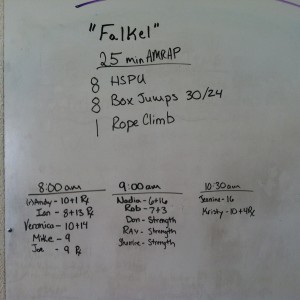 "Falkel"
25 min AMRAP
8 HSPU
8 Box Jumps 30/24
1 Rope Climb
8:00am
Andy - 10+1 Rx
Ian - 8+13 Rx
Veronica - 10+14
Mike - 9
Joe - 9 Rx
9:00am
Nadia - 6+16
Rob - 7+3
Don - Strength
Ray - Strength
Sherrie - Strength
10:30am
Jeanine - 16
Kristy - 10+4 Rx